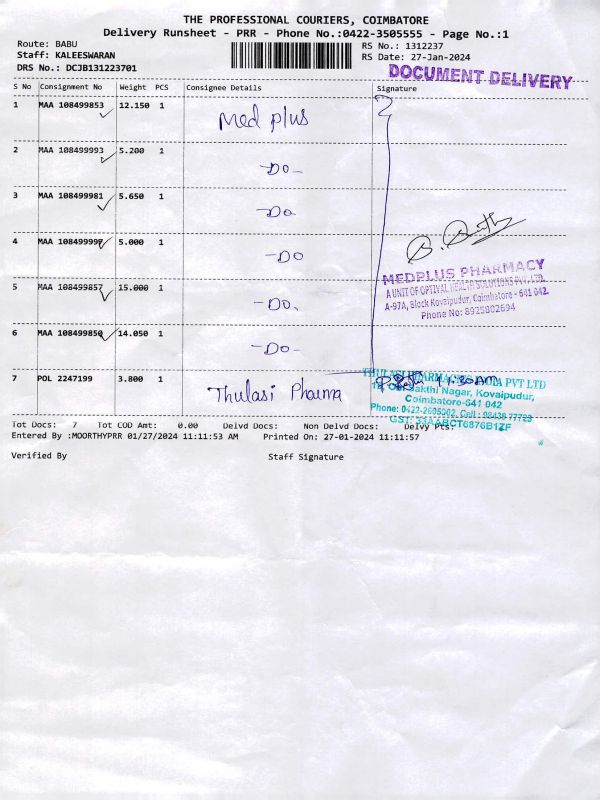 THE PROFESSIONAL COURIERS, COIMBATORE
Delivery Runsheet - PRR - Phone No.:0422-3505555 - Page No.:1
Route: BABU
Staff: KALEESWARAN
DRS No.: DCJB131223701
RS No.: 1312237
RS Date: 27-Jan-2024
DOCUMENT DELIVERY
S No Consignment No Weight PCS Consignee Details Signature
1 MAA 108499853 12.150 1 Med plus
2 MAA 108499993 5.200 1 -Do-
3 MAA 108499981 5.650 1 -Do
4 MAA 108499997 5.000 1 -Do
5 MAA 108499857 15.000 1 -Do.
6 MAA 108499850 14.050 1 -Do-
MEDPLUS PHARMACY
A UNIT OF OPTIVAL HEALTH SOLUTIONS PVT. LTD.
A-97A, Block Kovaipudur, Coimbatore - 641 042.
Phone No: 8925802694
7 POL 2247199 3.800 1 Thulasi Pharma
11.30 AM
THULASI PHARMACIES INDIA PVT LTD
Sakthi Nagar, Kovaipudur,
Coimbatore-641 042
Phone: 0422-2605002, Cell: 98438 77723
GST: 33AABCT6876B1ZF
Tot Docs: 7 Tot COD Amt: 0.00 Delvd Docs: Non Delvd Docs: Delvy Pts:
Entered By :MOORTHYPRR 01/27/2024 11:11:53 AM Printed On: 27-01-2024 11:11:57
Verified By Staff Signature